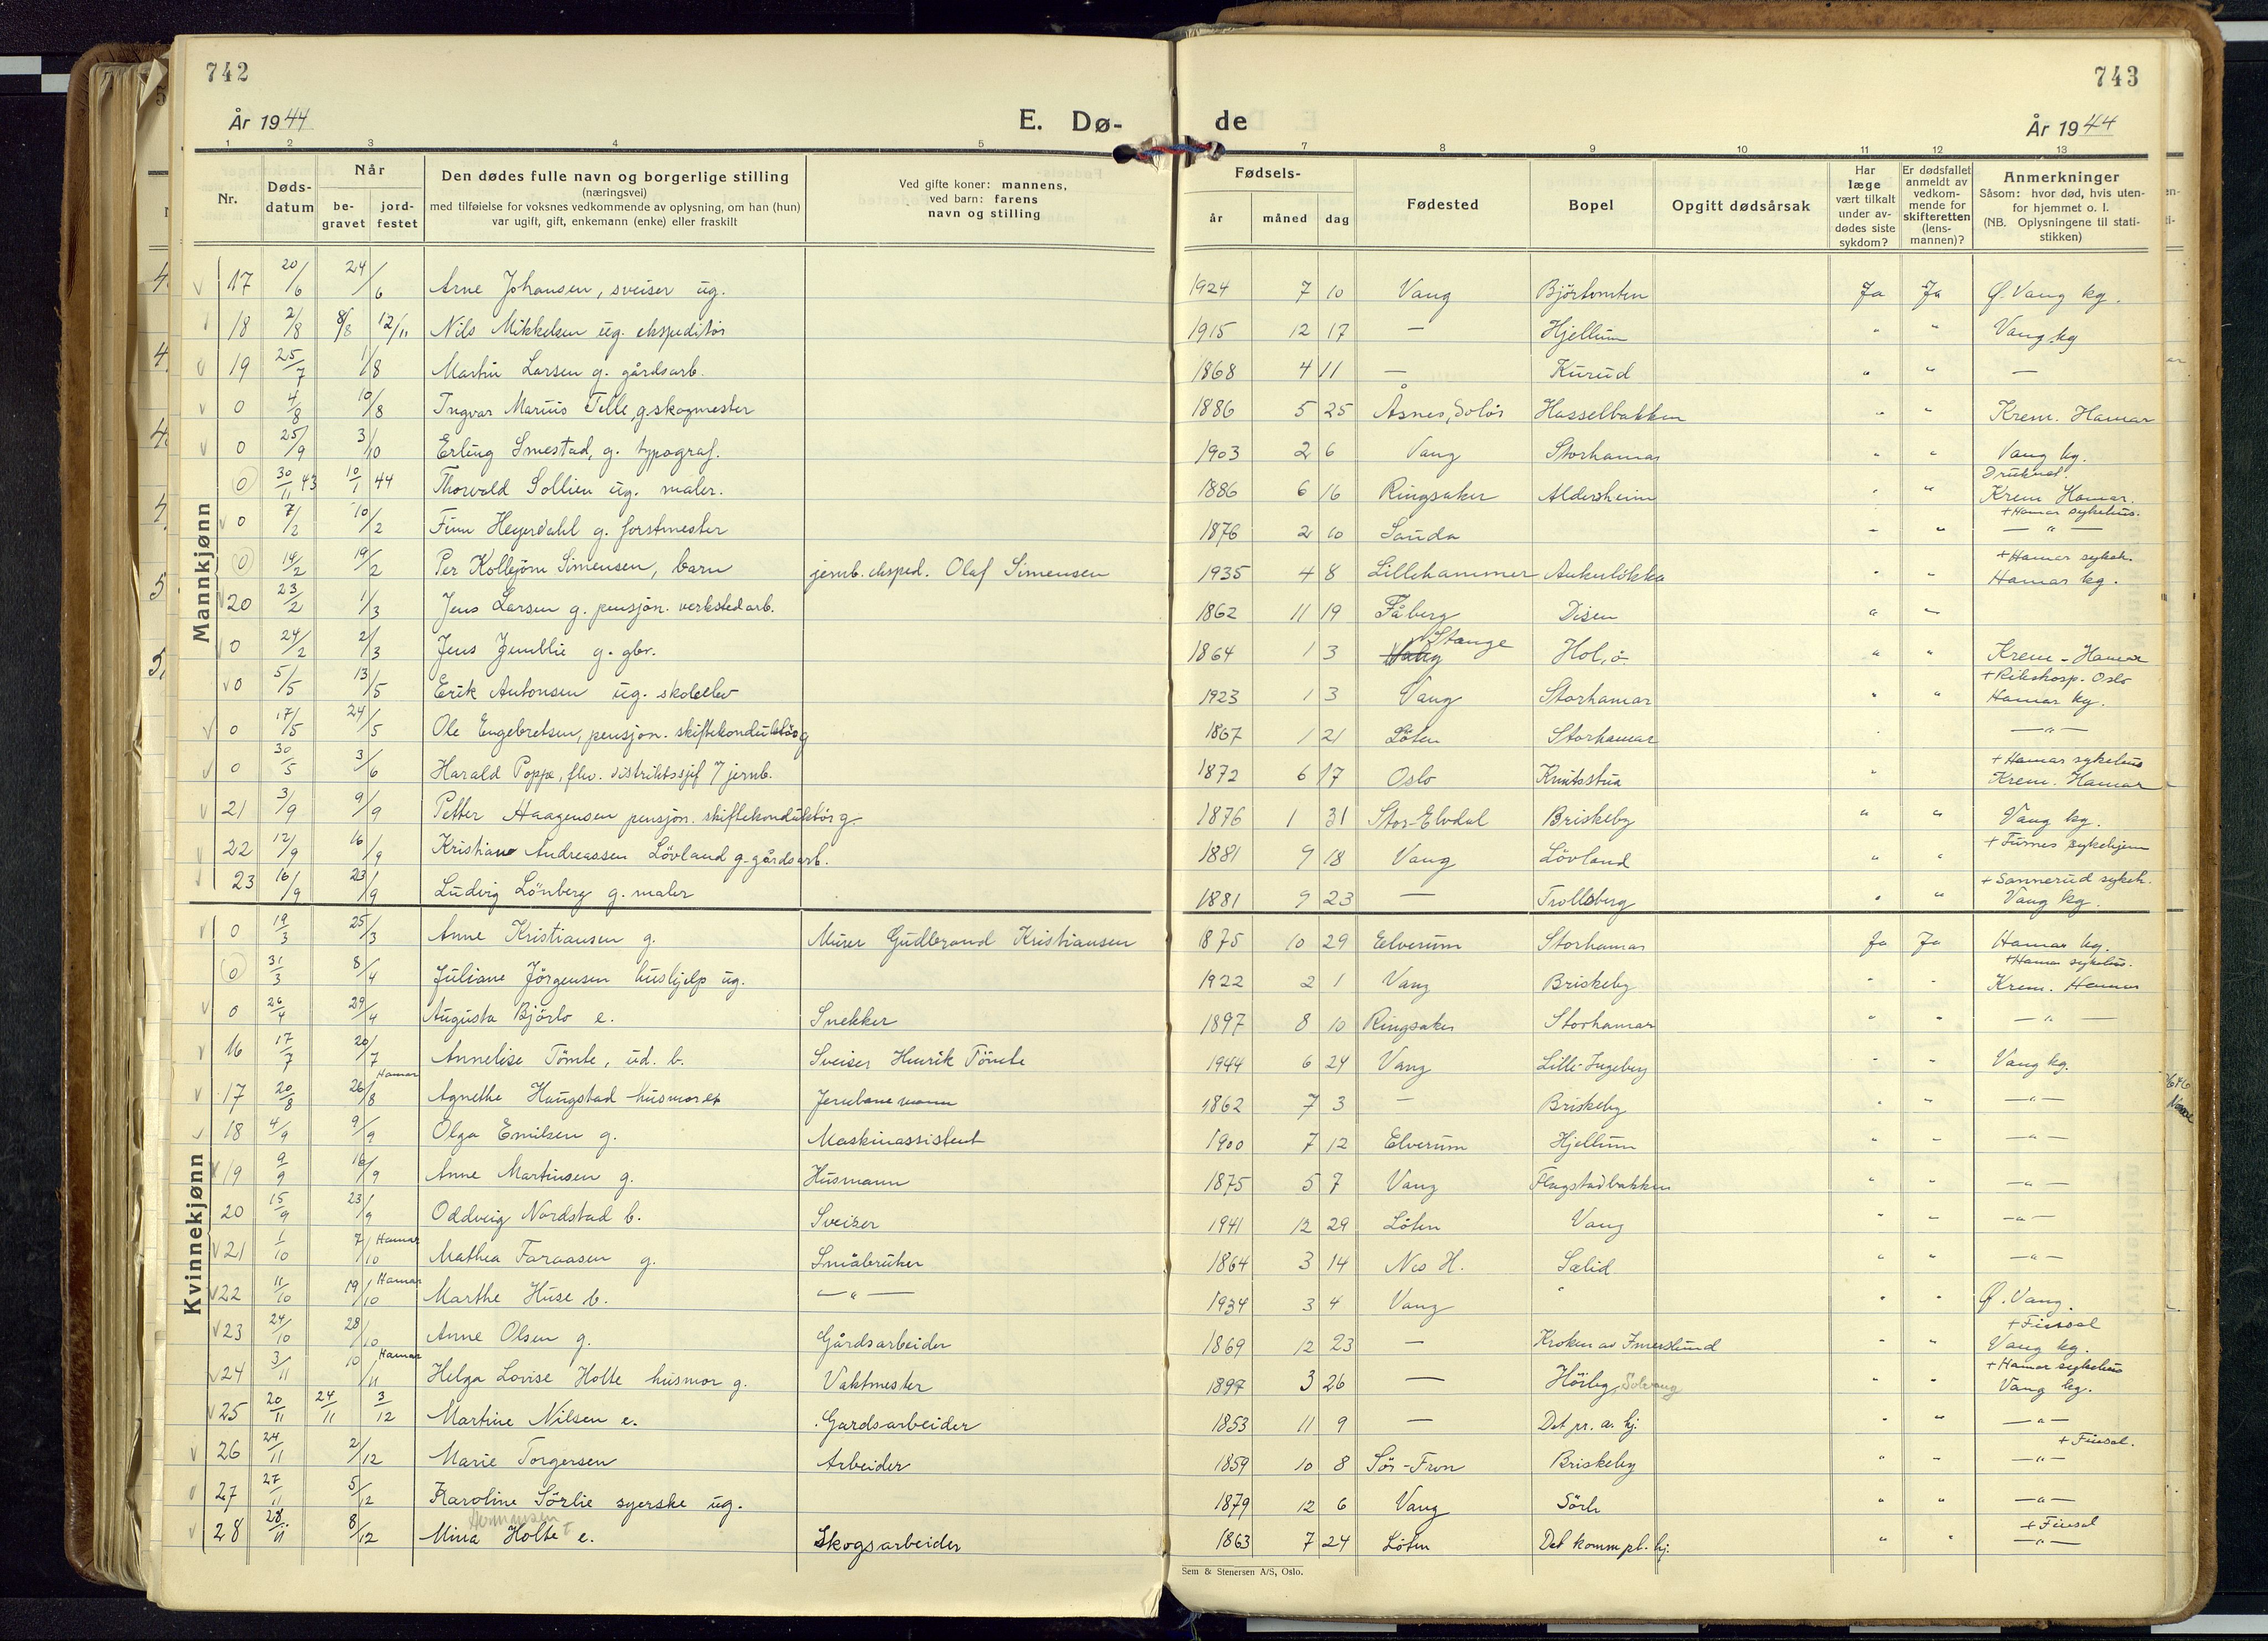 742
743
År 1944
E. Dø-
de
År 1944
1 2 3 4 5 7 8 9 10 11 12 13
Nr.
Døds-datum
Når
be-gravet
jord-festet
Den dødes fulle navn og borgerlige stilling
(næringsvei)
med tilføielse for voksnes vedkommende av oplysning, om han (hun)
var ugift, gift, enkemann (enke) eller fraskilt
Ved gifte koner: mannens,
ved barn: farens
navn og stilling
Fødsels-
år måned dag
Fødested
Bopel
Opgitt dødsårsak
Har læge vært tilkalt under av-dødes siste sykdom?
Er dødsfallet anmeldt av vedkom-mende for skifteretten (lens-mannen)?
Anmerkninger
Såsom: hvor død, hvis uten-for hjemmet o. l.
(NB. Oplysningene til stati-stikken)
Mannkjønn
17 20/6 24/6 Arne Johansen, sveiser ug. 1924 7 10 Vang Björtomten Ja Ja Ø. Vang kg.
18 2/8 8/8 12/11 Nils Mikkelsen ug. ekspeditör 1915 12 17 — Hjellum " " Vang kg
19 25/7 1/8 Martin Larsen g. gårdsarb. 1868 4 11 — Kurud " " —
0 4/8 10/8 Ingvar Marius Telle, g. skogmester 1886 5 25 Åsnes, Solör Hasselbakken " " Krem. Hamar
0 25/9 3/10 Erling Smestad, g. typograf. 1903 2 6 Vang Storhamar " " Vang kg.
Druknet.
0 30/11 43 10/1 44 Thorvald Sollien ug. maler. 1886 6 16 Ringsaker Aldersheim " " Krem Hamar.
+ Hamar sykehus.
0 7/2 10/2 Finn Heyerdahl g. forstmester 1876 2 10 Sauda " " — " —
+ Hamar sykeh.
0 14/2 19/2 Per Kolbjörn Simensen, barn jernb. eksped. Olaf Simensen 1935 4 8 Lillehammer Ankerlökka " " Hamar kg.
20 23/2 1/3 Jens Larsen g. pensjon. verkstedarb. 1862 11 19 Fåberg Disen " "
0 24/2 2/3 Jens Jemblie g. gbr. 1864 1 3 Vang Stange Hol, ö " " Krem - Hamar
+ Rikshosp. Oslo
0 5/5 13/5 Erik Antonsen ug. skoleelev 1923 1 3 Vang Storhamar " " Hamar kg.
0 17/5 24/5 Ole Engebretsen, pensjon. skiftekonduktör g 1867 1 21 Löten Storhamar " — " —
+ Hamar sykehus
0 30/5 3/6 Harald Poppe, fhv. distriktssjef 7 jernb. 1872 6 17 Oslo Knutsstua " Krem. Hamar
21 3/9 9/9 Petter Haagensen pensjon. skiftekonduktör g 1876 1 31 Stor-Elvdal Briskeby " " Vang kg.
+ Furnes sykehjem
22 12/9 16/9 Kristian Andreassen Lövland g. gårdsarb. 1881 9 18 Vang Lövland " "
+ Sannerud sykeh.
23 16/9 23/9 Ludvig Lönberg g. maler 1881 9 23 — Trollsberg " " Vang kg.
Kvinnekjønn
0 19/3 25/3 Anne Kristiansen g. Murer Gudbrand Kristiansen 1875 10 29 Elverum Storhamar Ja Ja Hamar kg.
+ Hamar sykehus.
0 31/3 8/4 Juliane Jörgensen hushjelp ug. 1922 2 1 Vang Briskeby " " Krem. Hamar
0 26/4 29/4 Augusta Björlo e. Snekker 1897 8 10 Ringsaker Storhamar " " — " —
16 17/7 20/7 Annelise Tömte, ud. b. Sveiser Henrik Tömte 1944 6 24 Vang Lille-Ingeberg " " Vang kg.
17 20/8 26/8 Hamar Agnethe Haugstad husmor e. Jernbanemann 1862 7 3 — Briskeby " " — " —
18 4/9 9/9 Olga Emilsen g. Maskinassistent 1900 7 12 Elverum Hjellum " " — " —
19 9/9 16/9 Anne Martinsen g. Husmann 1875 5 7 Vang Flagstadbakken " " — " —
20 15/9 23/9 Oddveig Nordstad b. Sveiser 1941 12 29 Löten Vang " " — " —
21 1/10 7/10 Hamar Mathea Faraasen g. Småbruker 1864 3 14 Nes H. Sælid " " — " —
22 11/10 19/10 Hamar Marthe Huse b. — " — 1934 3 4 Vang " " " Ø. Vang.
+ Finsal
23 24/10 28/10 Anne Olsen g. Gårdsarbeider 1869 12 23 — Kroken av Imerslund " " Vang kg.
+ Hamar sykehus
24 3/11 10/11 Hamar Helga Lovise Holte husmor g. Vaktmester 1897 3 26 — Hörby, Solvang " " Vang kg.
25 20/11 24/11 3/12 Martine Nilsen e. Gardsarbeider 1853 11 9 — Det pr. a. hj. " " — " —
+ Finsal.
26 24/11 2/12 Marie Torgersen Arbeider 1859 10 8 Sör-Fron Briskeby " " — " —
27 27/11 5/12 Karoline Sörlie syerske ug. 1879 12 6 Vang Sörli " " — " —
+ Finsal
28 28/11 8/12 Mina Hermansen Holte e. Skogsarbeider 1863 7 24 Löten Det komm pl. hj. " " — " —
Sem & Stenersen A/S, Oslo.